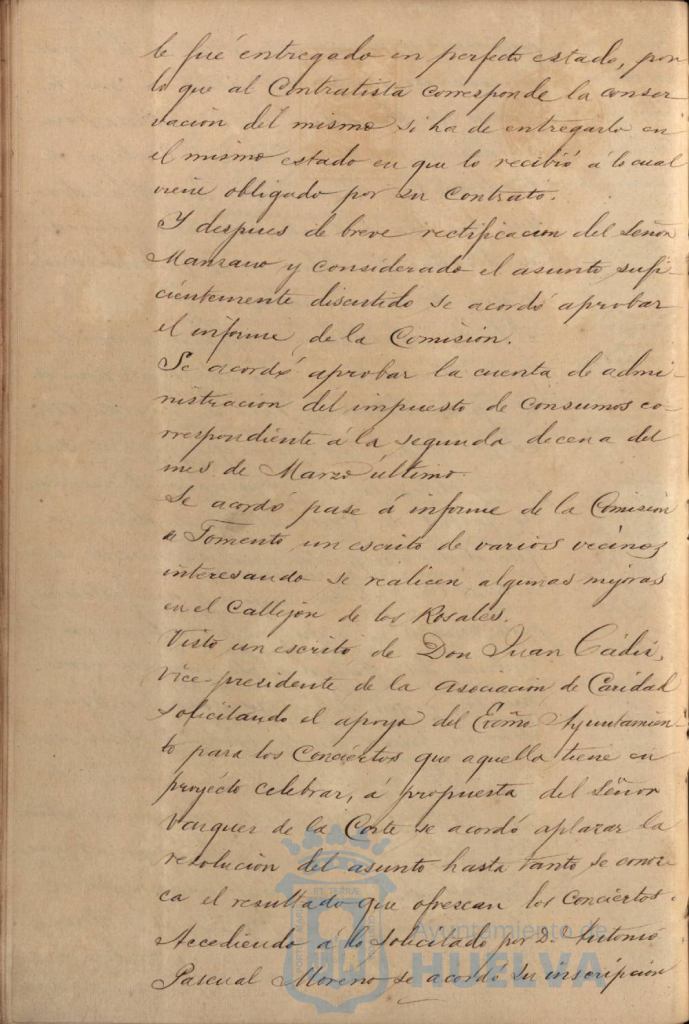 le fué entregado en perfecto estado, por
lo que al Contratista corresponde la conser
vacion del mismo si ha de entregarlo en
el mismo estado en que lo recibió á lo cual
viene obligado por su Contrato.
Y despues de breve rectificacion del Señor
Manzano y considerado el asunto sufi-
cientemente discutido se acordó aprobar
el informe de la Comision.
Se acordó aprobar la cuenta de admi-
nistracion del impuesto de Consumos co-
rrespondiente á la segunda decena del
mes de Marzo último.
Se acordó pase á informe de la Comision
de Fomento, un escrito de varios vecinos
interesando se realicen algunas mejoras
en el Callejon de los Rosales.
Visto un escrito de Don Juan Cádiz,
Vice-presidente de la Asociacion de Caridad
solicitando el apoyo del Excmo Ayuntamien-
to para los Conciertos que aquella tiene en
proyécto celebrar, á propuesta del Señor
Vazquez de la Corte se acordó aplazar la
resolucion del asunto hasta tanto se conoz-
ca el resultado que ofrezcan los Conciertos.
Accediendo á lo solicitado por D. Antonio
Pascual Moreno se acordó su inscripcion
Ayuntamiento de
HUELVA